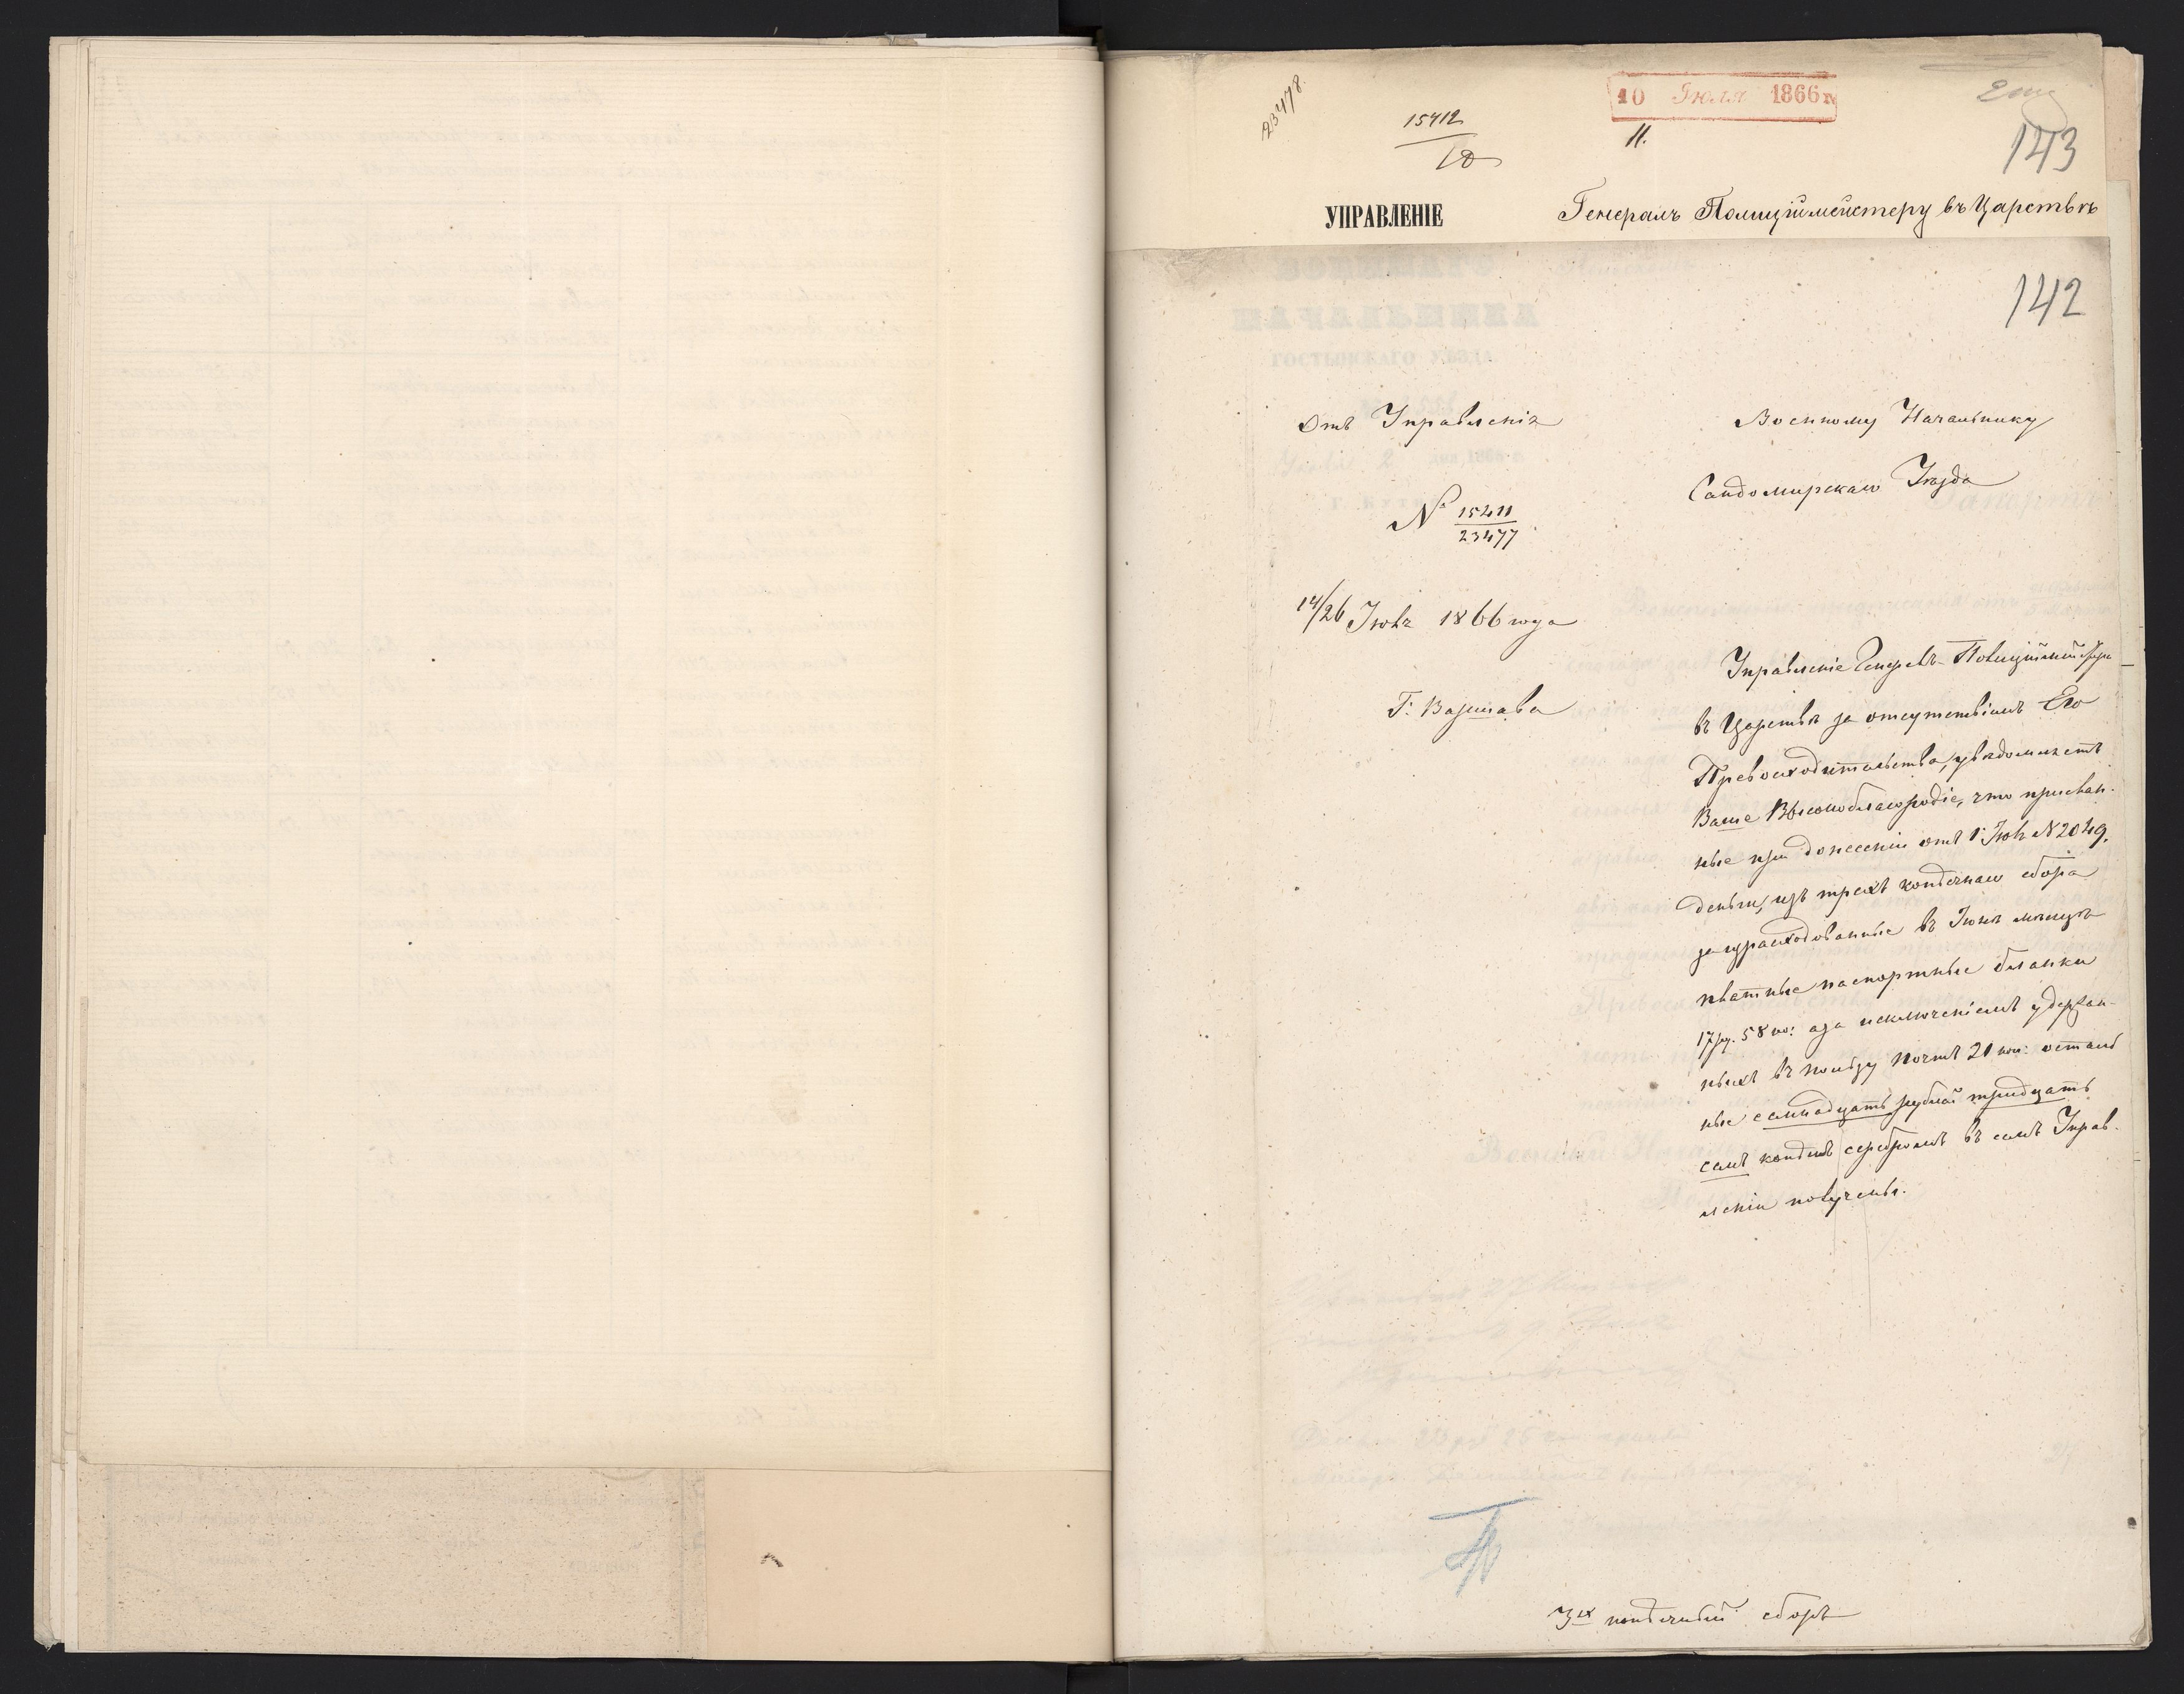 23478.
15412
18
10 Іюля 1866 г.
11.
143
УПРАВЛЕНІЕ
Генералъ Полиціймейстеру въ Царствѣ
142
Отъ Управленія
№ 15411
23477
14/26 Іюля 1866 года
Г. Варшава
Военному Начальнику
Сандомирскаго Уѣзда
Управленіе Генералъ-Полиціймейстера
въ Царствѣ за отсутствіемъ Его
Превосходительства, увѣдомляетъ
Ваше Высокоблагородіе, что прислан-
ные при донесеніи отъ 1 Іюля № 2049,
деньги, изъ трехъ копѣечнаго сбора
за израсходованные въ Іюнѣ мѣсяцѣ
платные паспортные бланки
17 ру. 58 ко: а за исключеніемъ удержан-
ныхъ въ пользу почтъ 21 коп: осталь
ные семнадцать рублей тридцать
семь копѣекъ серебромъ въ семъ Управ-
леніи получены.
3хъ копѣечный сборъ